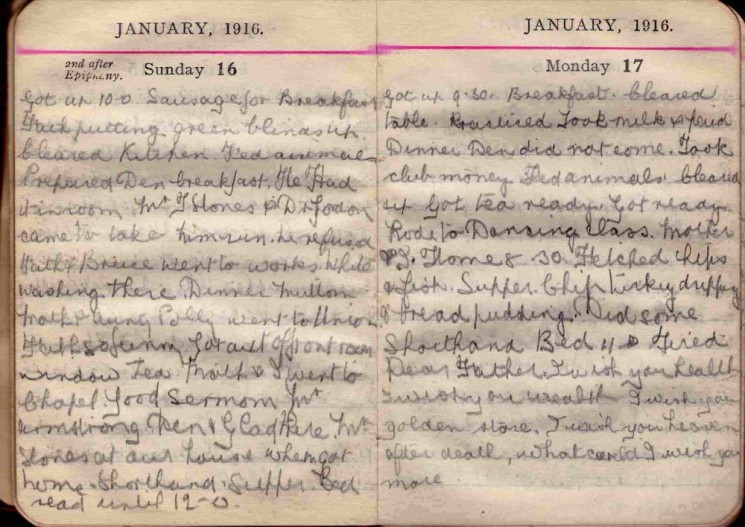 JANUARY, 1916.
2nd after Epiphany.
Sunday 16
Got up 10-0 Sausage for Breakfast
Fath putting green blinds up
Cleared Kitchen. Fed animals
Prepared Den breakfast. He Had
it in room Mr Stones & Dr
came to take him run. he refused
Fath & Bruce went to works. While
washing there. Dinner Mutton
Moth & Aunty Polly went to Union
Fath so funny Got out of front room
window Tea Moth & I went to
Chapel Good Sermon Mr
Armstrong Den & Glad there. Mr
Stones at our house when got
home. Shorthand. Supper. Bed
read until 12-0.
JANUARY, 1916.
Monday 17
Got up 9.30. Breakfast. Cleared
table. Practised Took milk & paid
Dinner Den did not come. Took
club money Fed animals Cleared
up Got tea ready. Got ready.
Rode to Dancing Class. Mother
& I. Home 8 30 Fetched chips
& fish. Supper Chip turkey dripping
& bread pudding. Did some
Shorthand Bed 11 Tired
Dear Father, I wish you health
I wish you wealth I wish you
golden store. I wish you heaven
after death, what could I wish you
more.